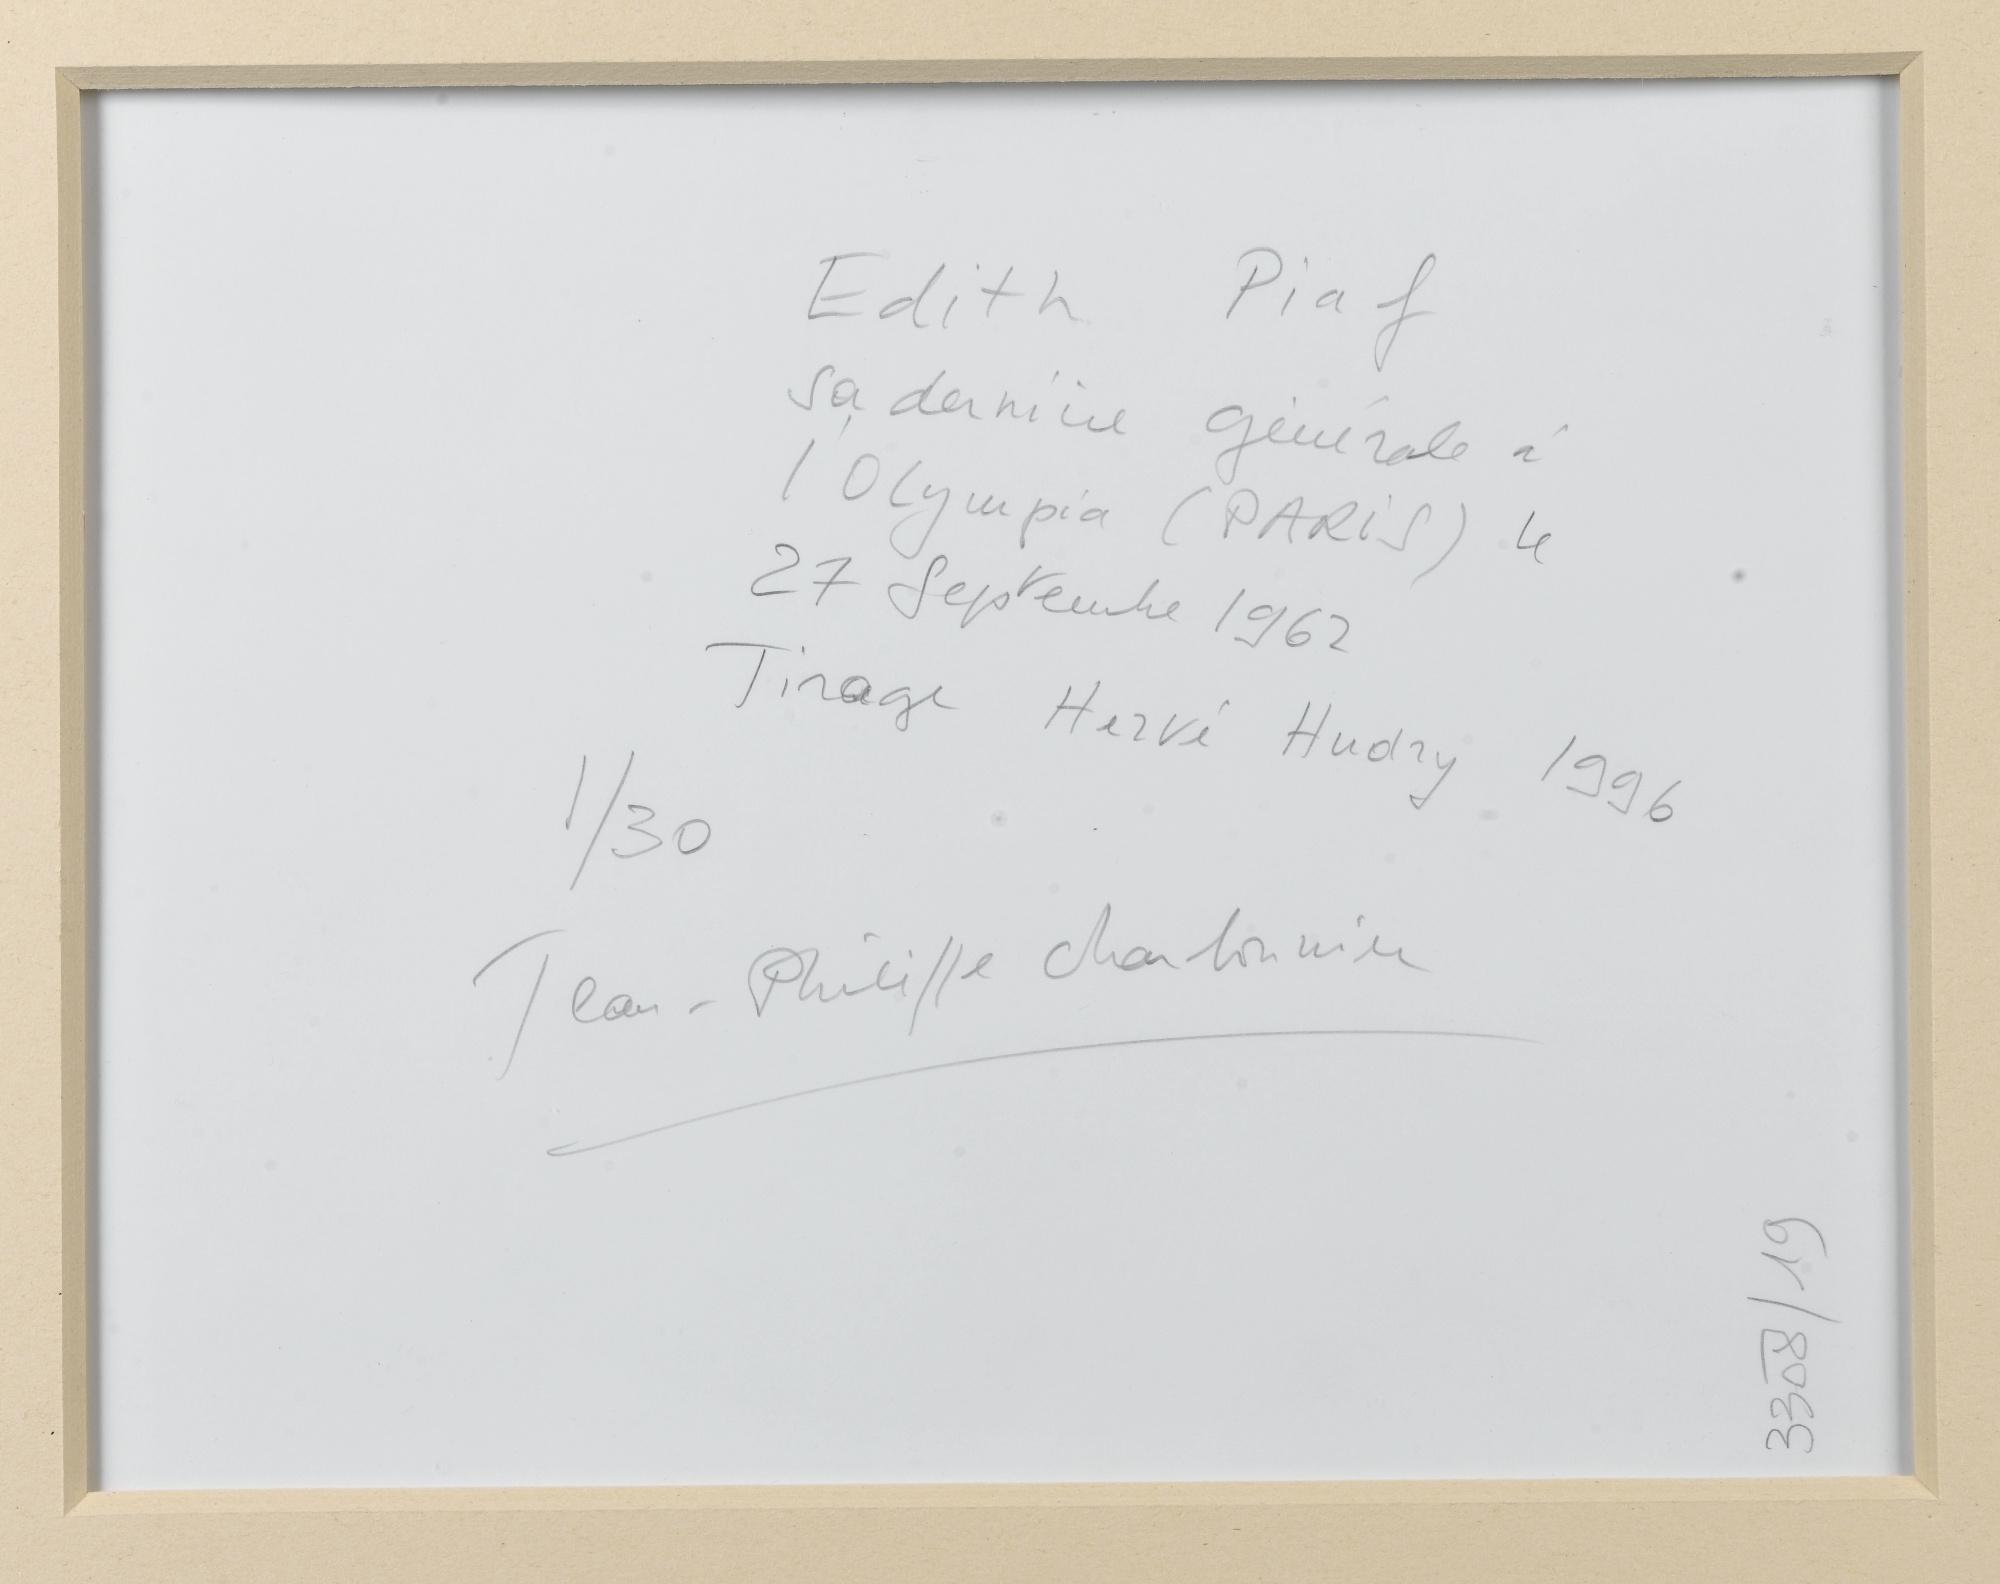 Edith Piaf
sa dernière générale à
l'Olympia (PARIS) le
27 Septembre 1962
Tirage Hervé Hudry 1996
1/30
Jean-Philippe Charbonnier
3308/19